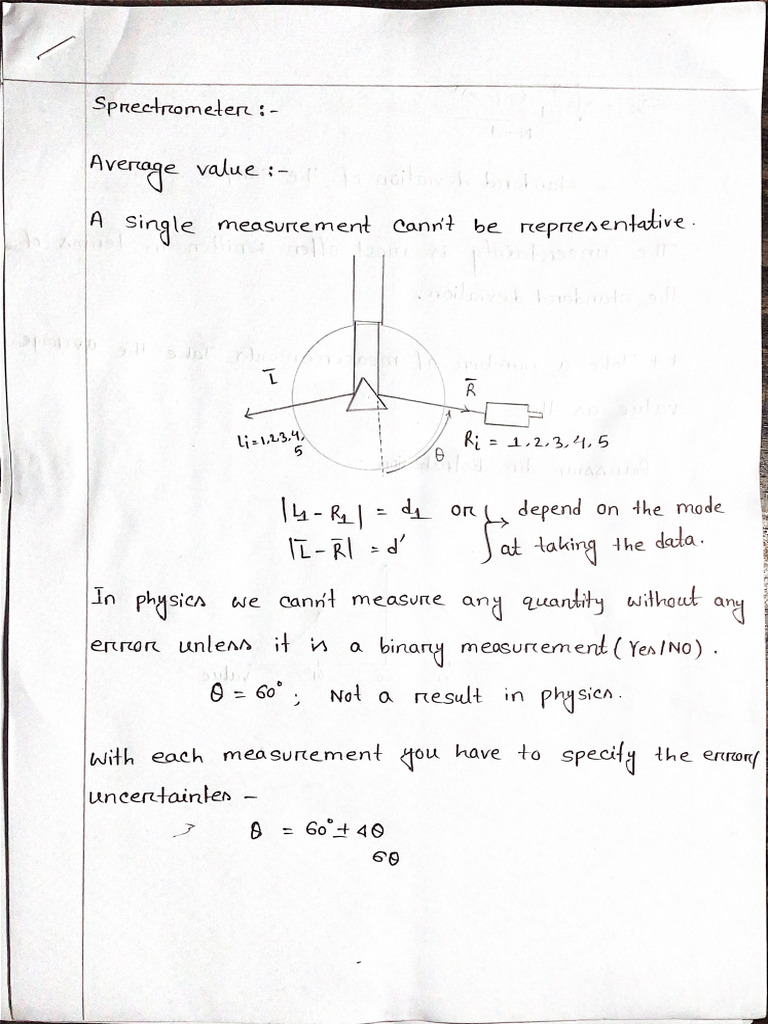 Sprectrometer :-
Average value :-
A single measurement cann't be representative.
L̅
R̅
Li = 1,2,3,4,
5
Ri = 1, 2, 3, 4, 5
θ
|L1 - R1| = d1 or } → depend on the mode
|L̅ - R̅| = d' at taking the data.
In physics we cann't measure any quantity without any
error unless it is a binary measurement (Yes/NO).
θ = 60° ; Not a result in physics.
With each measurement you have to specify the error/
uncertaintes -
θ = 60° ± Δθ
σθ